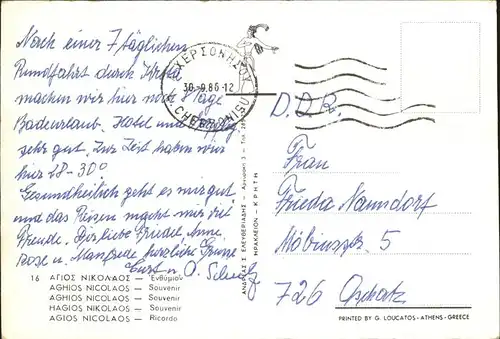 Nach einer 7täglichen
Rundfahrt durch Kreta
machen wir hier noch Tage
Badeurlaub. Hotel und
sehr gut. Zur Zeit haben wir
hier 28-30°
Gesundheitlich geht es mir gut
und das Reisen macht mir viel
Freude. Dir liebe Friedel Anne
Rose u. Manfred herzliche Grüsse
Curt u. O.
ΧΕΡΣΟΝΗΣΟΥ
30.-9.86-12
CHERSONISU
D.D.R.
Frau
Frieda Nanndorf
Möbiusstr. 5
726 Oschatz
ΑΝΔΡΕΑΣ Σ. ΕΛΕΥΘΕΡΙΑΔΗΣ
ΗΡΑΚΛΕΙΟΝ - ΚΡΗΤΗ
16 ΑΓΙΟΣ ΝΙΚΟΛΑΟΣ — Ενθύμιον
AGHIOS NICOLAOS — Souvenir
AGHIOS NICOLAOS — Souvenir
HAGIOS NIKOLAOS — Souvenir
AGIOS NICOLAOS — Ricordo
PRINTED BY G. LOUCATOS - ATHENS - GREECE